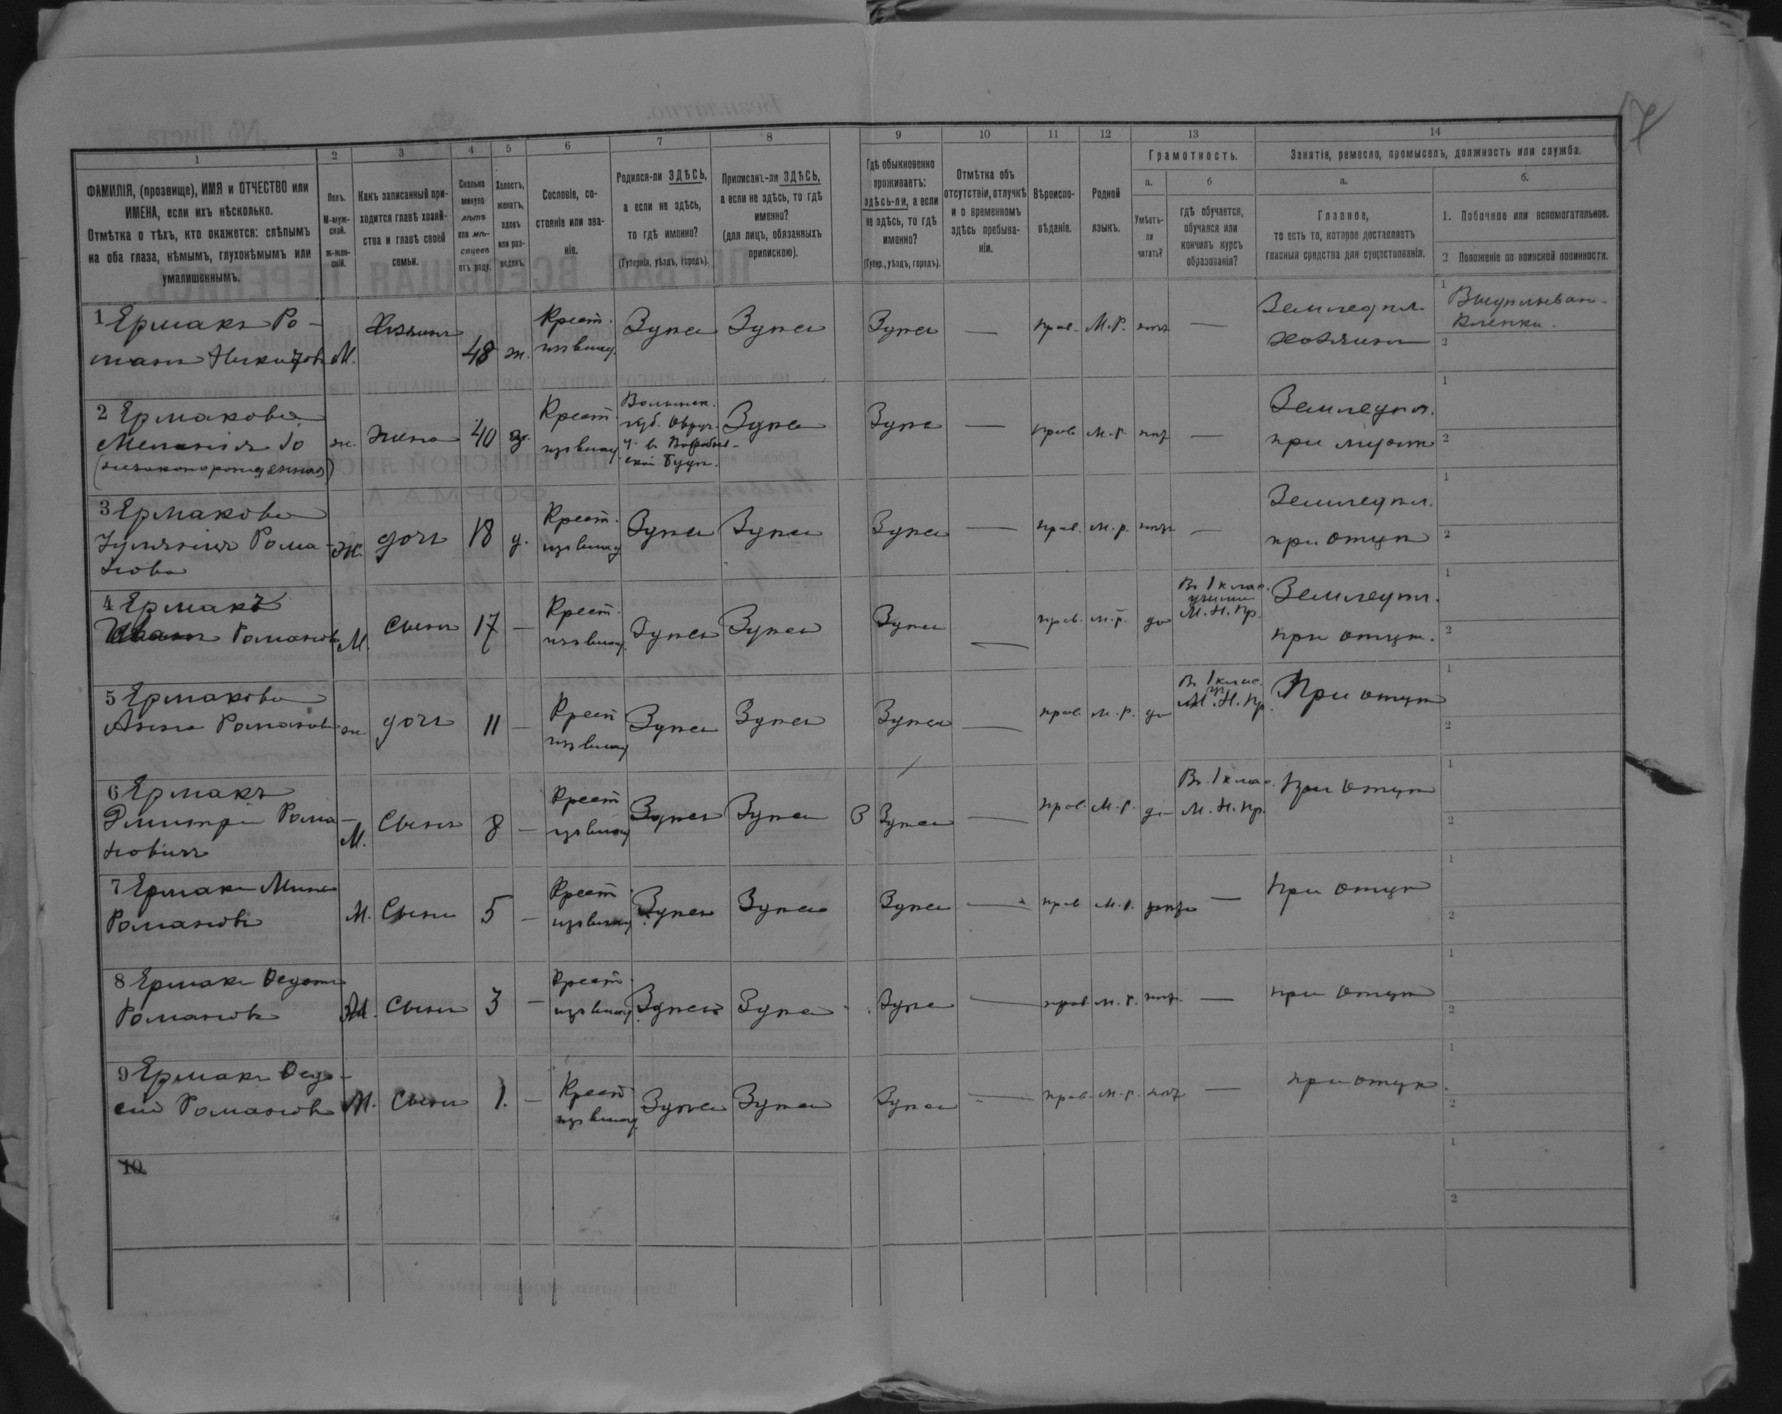 1 2 3 4 5 6 7 8 9 10 11 12 13 14
ФАМИЛІЯ, (прозвище), ИМЯ и ОТЧЕСТВО или
ИМЕНА, если ихъ нѣсколько.
Отмѣтка о тѣхъ, кто окажется: слѣпымъ
на оба глаза, нѣмымъ, глухонѣмымъ или
умалишеннымъ.
Полъ.
М-муж-
ской.
ж-жен-
скій.
Какъ записанный при-
ходится главѣ хозяй-
ства и главѣ своей
семьи.
Сколько
минуло
лѣтъ
или мѣ-
сяцевъ
отъ роду.
Холостъ,
женатъ,
вдовъ
или раз-
веденъ.
Сословіе, со-
стояніе или зва-
ніе.
Родился-ли ЗДѢСЬ,
а если не здѣсь,
то гдѣ именно?
(Губернія, уѣздъ, городъ).
Приписанъ-ли ЗДѢСЬ,
а если не здѣсь, то гдѣ
именно?
(для лицъ, обязанныхъ
припискою).
Гдѣ обыкновенно
проживаетъ:
здѣсь-ли, а если
не здѣсь, то гдѣ
именно?
(Губер., уѣздъ, городъ).
Отмѣтка объ
отсутствіи, отлучкѣ
и о временномъ
здѣсь пребыва-
ніи.
Вѣроиспо-
вѣданіе.
Родной
языкъ.
Грамотность.
а.
Умѣетъ-
ли
читать?
б
гдѣ обучается,
обучался или
кончилъ курсъ
образованія?
Занятіе, ремесло, промыселъ, должность или служба.
а.
Главное,
то есть то, которое доставляетъ
главныя средства для существованія.
б.
1. Побочное или вспомогательное.
2 Положеніе по воинской повинности.
1 Ермакъ Ро-
манъ Никитовъ М. Хозяинъ 48 ж. Крест. Здѣсь Здѣсь Здѣсь — прав. М.Р. нѣтъ — Земледѣл. хозяинъ
1
2
2 Ермакова
Меланія
(незаконорожденная) ж. жена 40 з. Крест. Волынск. губ. Овруч. у. Здѣсь Здѣсь — прав М.Р. нѣт — Земледѣл. при мужѣ
1
2
3 Ермакова
Рома-
нова ж. дочь 18 д. Крест. Здѣсь Здѣсь Здѣсь — прав. М.р. нѣтъ — Земледѣл. при отцѣ
1
2
4 Ермакъ
Иванъ Романовъ М. сынъ 17 — Крест. Здѣсь Здѣсь Здѣсь — прав. М.р. да Въ 1 клас. училищ М.Н.Пр. Земледѣл. при отцѣ.
1
2
5 Ермакова
Анна Романова ж. дочь 11 — Крест Здѣсь Здѣсь Здѣсь — прав М.Р. да Въ 1 клас. М.Н.Пр. При отцѣ
1
2
6 Ермакъ
Димитрій Рома-
новичъ М. Сынъ 8 — Крест Здѣсь Здѣсь Здѣсь — прав М.Р. да Въ 1 клас. М.Н.Пр. При отцѣ
1
2
7 Ермакъ Мина
Романовъ М. Сынъ 5 — Крест Здѣсь Здѣсь Здѣсь — прав М.Р. нѣтъ — При отцѣ
1
2
8 Ермакъ Федотъ
Романовъ М. сынъ 3 — Крест Здѣсь Здѣсь Здѣсь — прав М.Р. нѣт — при отцѣ
1
2
9 Ермакъ Федо-
сій Романовъ М. сынъ 1. — Крест Здѣсь Здѣсь Здѣсь — прав. М.р. нѣт — при отцѣ.
1
2
10
1
2